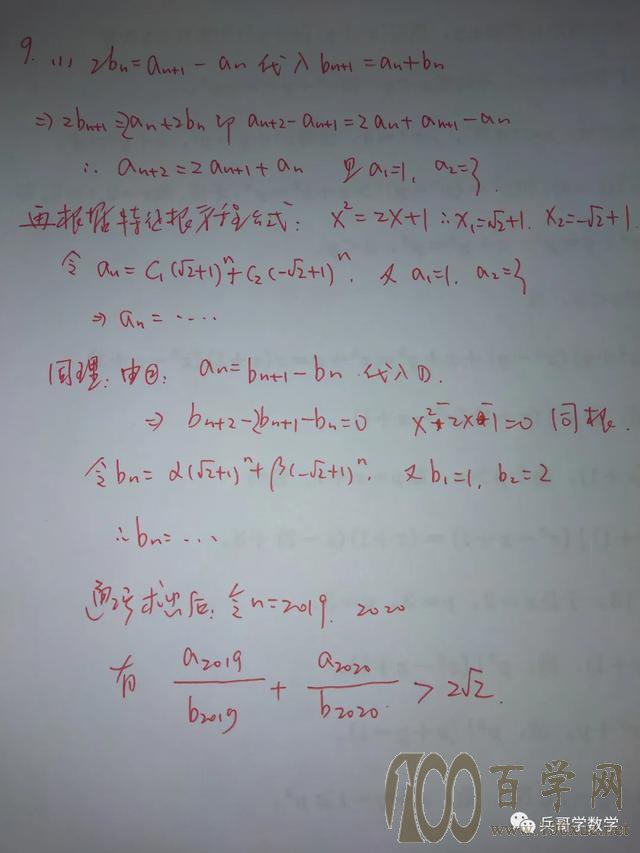 9. (1) 2bn=an+1-an 代入 bn+1=an+bn
⇒ 2bn+1=2an+2bn 即 an+2-an+1=2an+an+1-an
∴ an+2=2an+1+an 且 a1=1, a2=3.
再根据特征根方程公式: x²=2x+1 ∴x1=√2+1. x2=-√2+1
令 an=C1(√2+1)ⁿ+C2(-√2+1)ⁿ. 又 a1=1. a2=3
⇒ an=·····
同理: 由②: an=bn+1-bn 代入①.
⇒ bn+2-2bn+1-bn=0 x²-2x-1=0 同根.
令 bn=α(√2+1)ⁿ+β(-√2+1)ⁿ. 又 b1=1, b2=2
∴bn=···
通项求出后: 令n=2019. 2020
有 a2019/b2019 + a2020/b2020 > 2√2.
100百学网
兵哥学数学